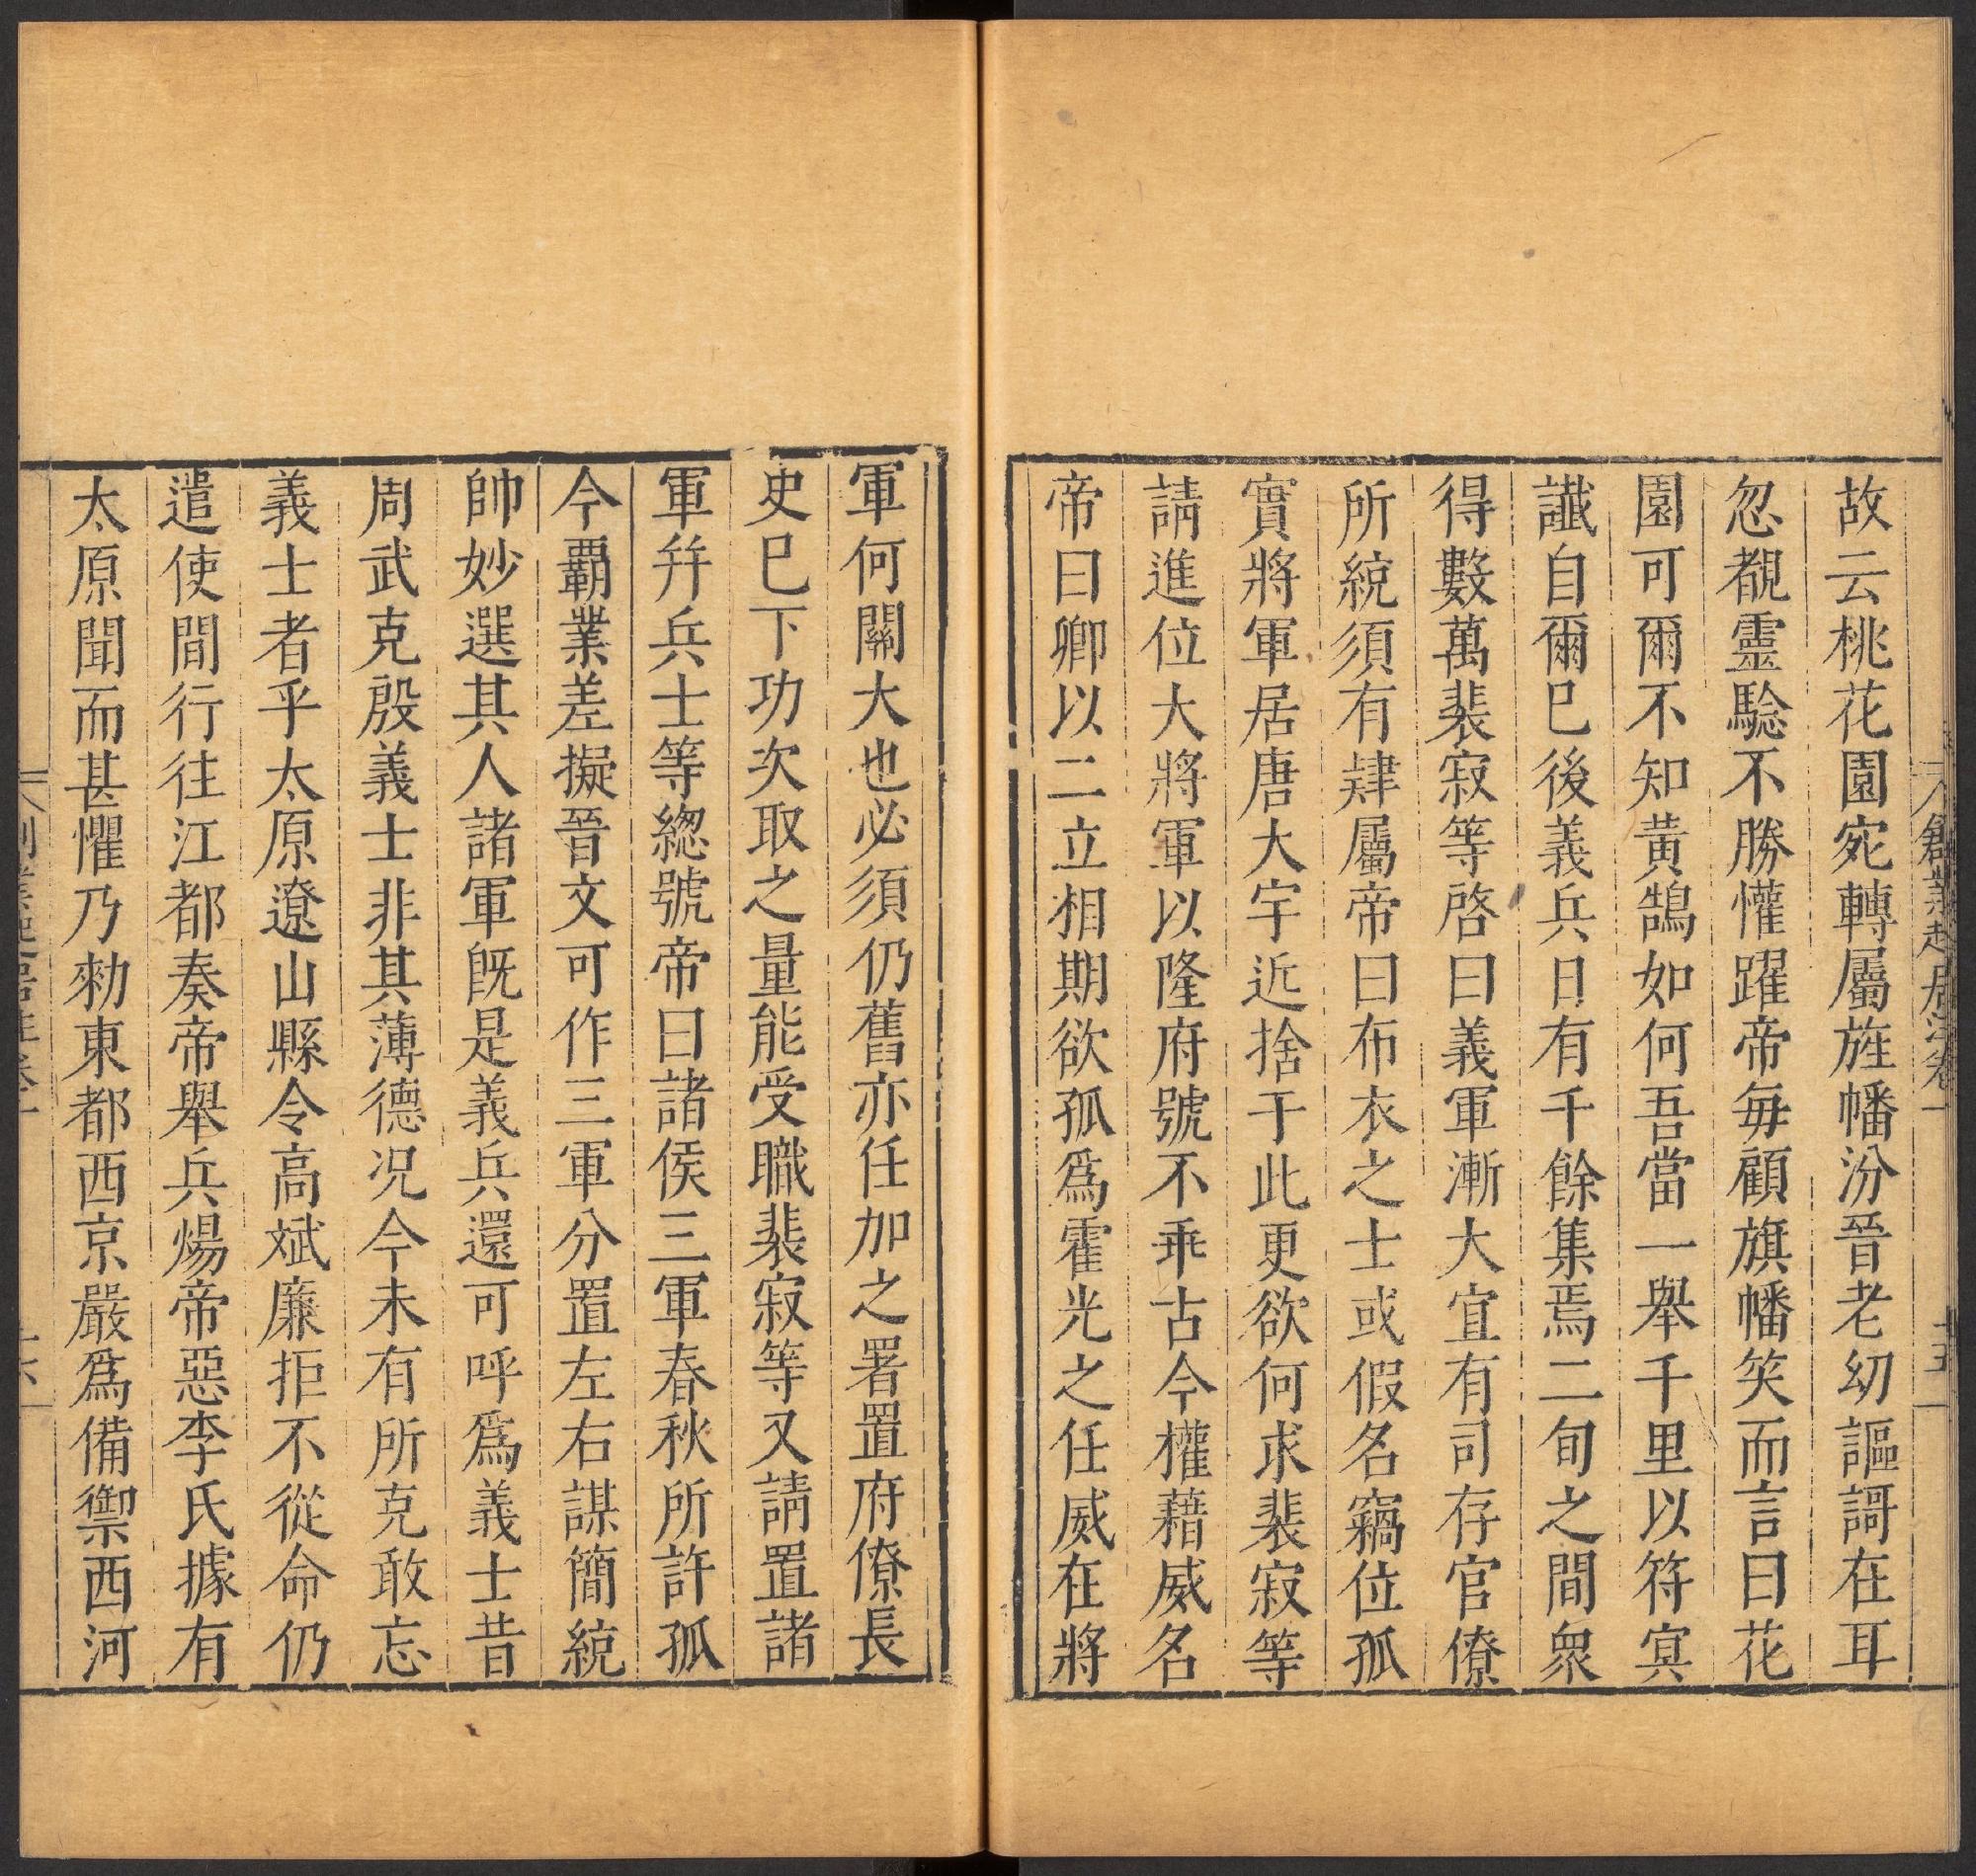 故云桃花園宛轉屬旌幡汾晉老幼謳謌在耳
忽覩靈驗不勝懽躍帝每顧旗幡笑而言曰花
園可爾不知黃鵠如何吾當一舉千里以符冥
讖自爾已後義兵日有千餘集焉二旬之間衆
得數萬裴寂等啓曰義軍漸大宜有司存官僚
所統須有肄屬帝曰布衣之士或假名竊位孤
實將軍居唐大宇近捨于此更欲何求裴寂等
請進位大將軍以隆府號不乖古今權藉威名
帝曰卿以二立相期欲孤爲霍光之任威在將
軍何關大也必須仍舊亦任加之署置府僚長
史巳下功次取之量能受職裴寂等又請置諸
軍幷兵士等總號帝曰諸侯三軍春秋所許孤
今霸業差擬晉文可作三軍分置左右謀簡統
帥妙選其人諸軍旣是義兵還可呼爲義士昔
周武克殷義士非其薄德况今未有所克敢忘
義士者乎太原遼山縣令高斌廉拒不從命仍
遣使間行往江都奏帝舉兵煬帝惡李氏據有
太原聞而甚懼乃勑東都西京嚴爲備禦西河